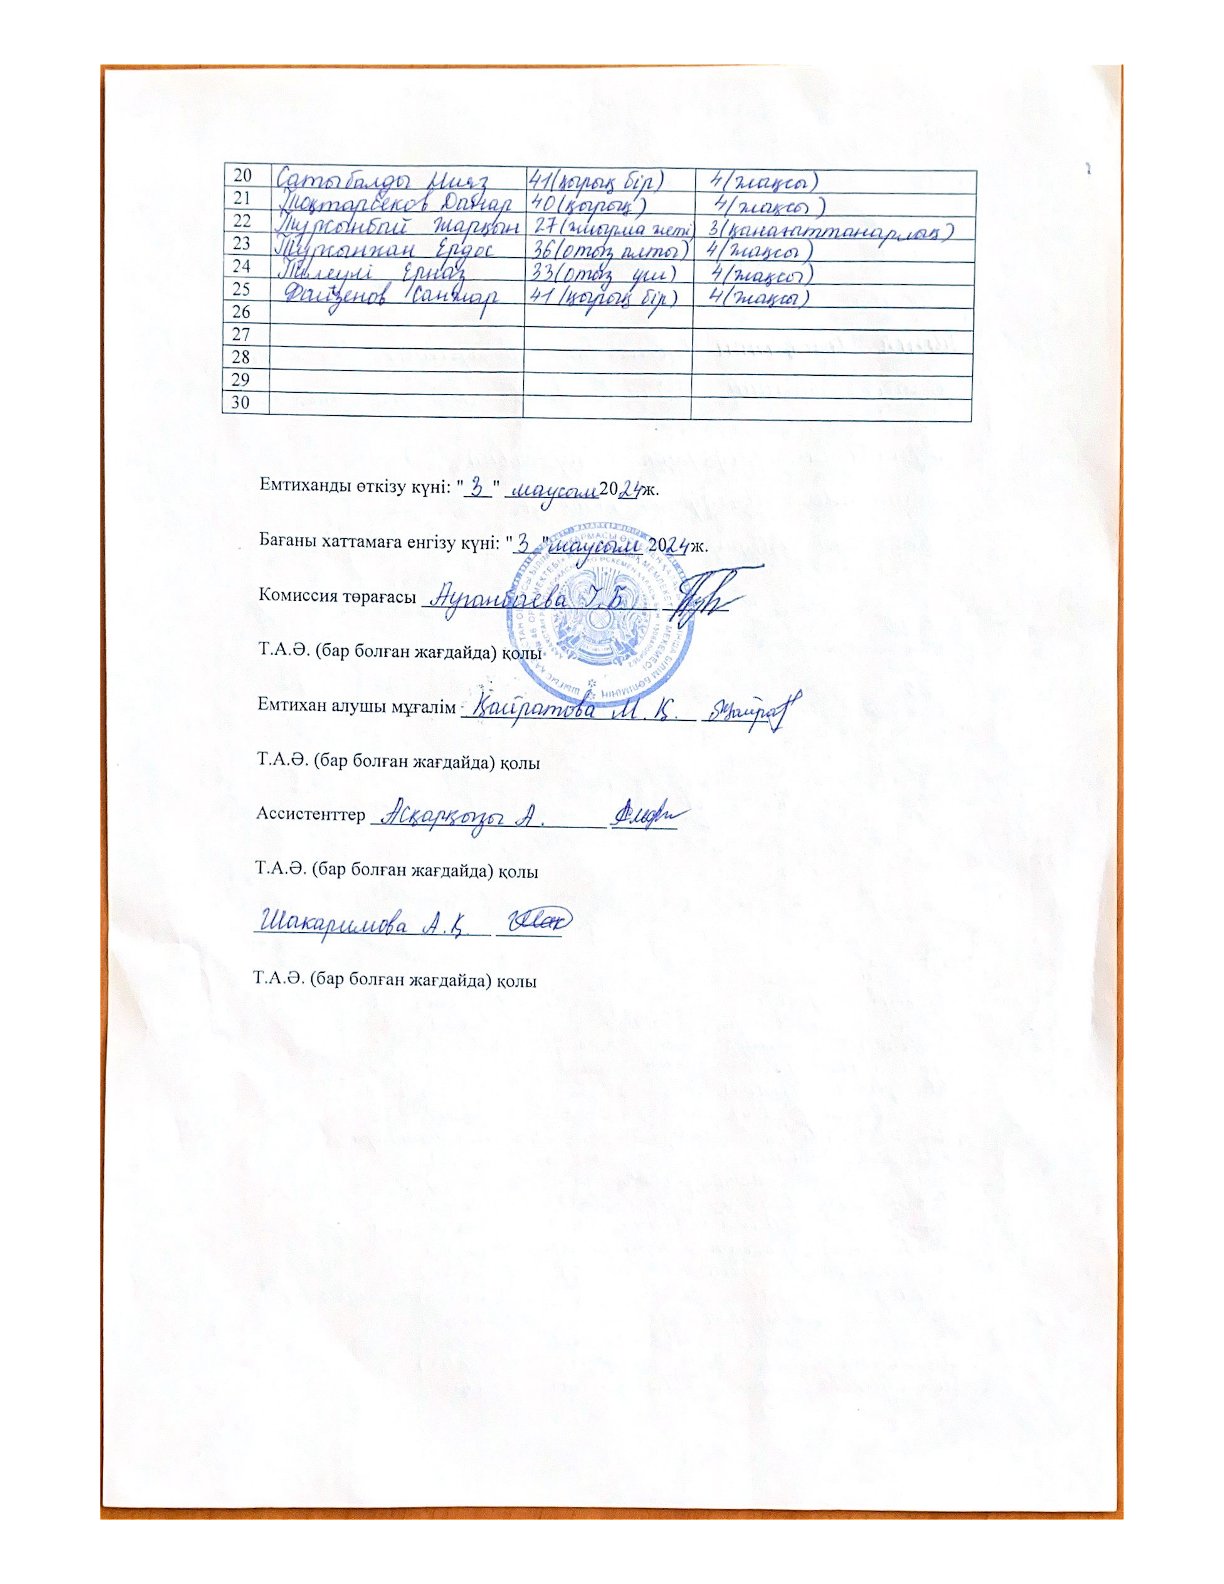 20 Сатыбалды Нияз 41(қырық бір) 4(жақсы)
21 Тоқтарбеков Динар 40(қырық) 4(жақсы)
22 Тұрсынбай Жарқын 27(жиырма жеті) 3(қанағаттанарлық)
23 Тұрсынхан Ердос 36(отыз алты) 4(жақсы)
24 Тілеулі Ерназ 33(отыз үш) 4(жақсы)
25 Файзенов Санжар 41(қырық бір) 4(жақсы)
26
27
28
29
30
Емтиханды өткізу күні: "3" маусым 2024ж.
Бағаны хаттамаға енгізу күні: "3" маусым 2024ж.
Комиссия төрағасы Ауганбаева Г.Б.
Т.А.Ә. (бар болған жағдайда) қолы
Емтихан алушы мұғалім Қайратова М.Қ.
Т.А.Ә. (бар болған жағдайда) қолы
Ассистенттер Асқарқызы А.
Т.А.Ә. (бар болған жағдайда) қолы
Шакаримова А.Қ.
Т.А.Ә. (бар болған жағдайда) қолы